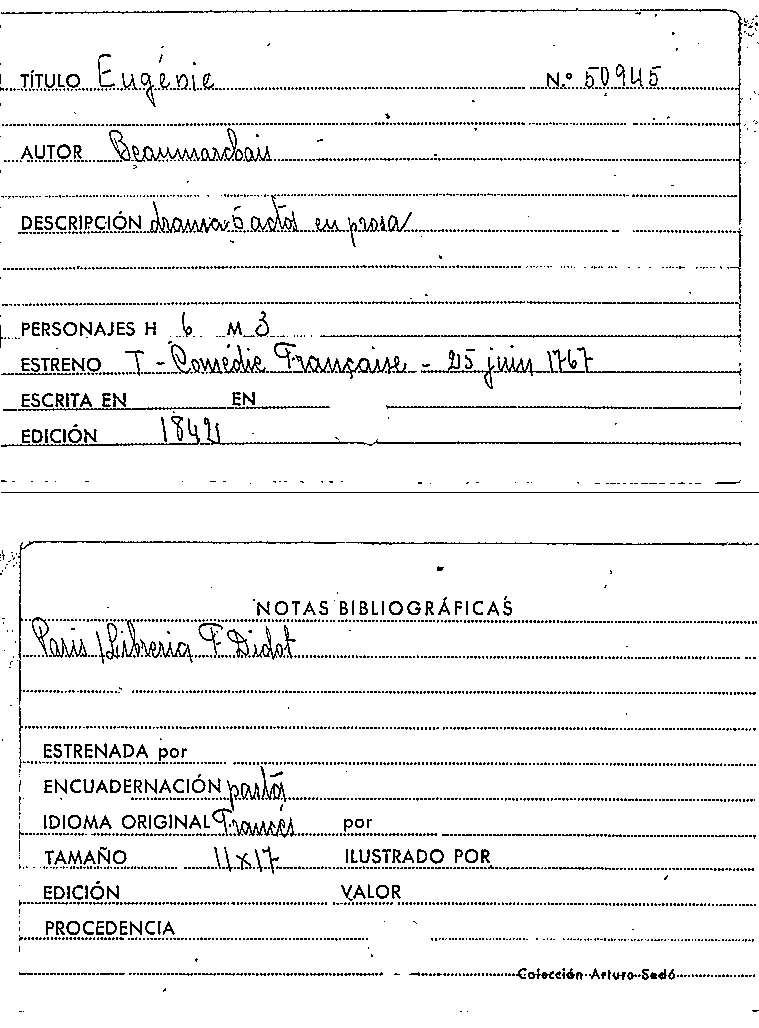 TÍTULO Eugénie N.º 50945
AUTOR Beaumarchais
DESCRIPCIÓN drama 5 actos en prosa
PERSONAJES H 6 M 3
ESTRENO T - Comédie Française - 25 juin 1767
ESCRITA EN EN
EDICIÓN 1842
NOTAS BIBLIOGRÁFICAS
Paris / Libreria F Didot
ESTRENADA por
ENCUADERNACIÓN pasta
IDIOMA ORIGINAL Francés por
TAMAÑO 11x17 ILUSTRADO POR
EDICIÓN VALOR
PROCEDENCIA
Colección Arturo Sedó